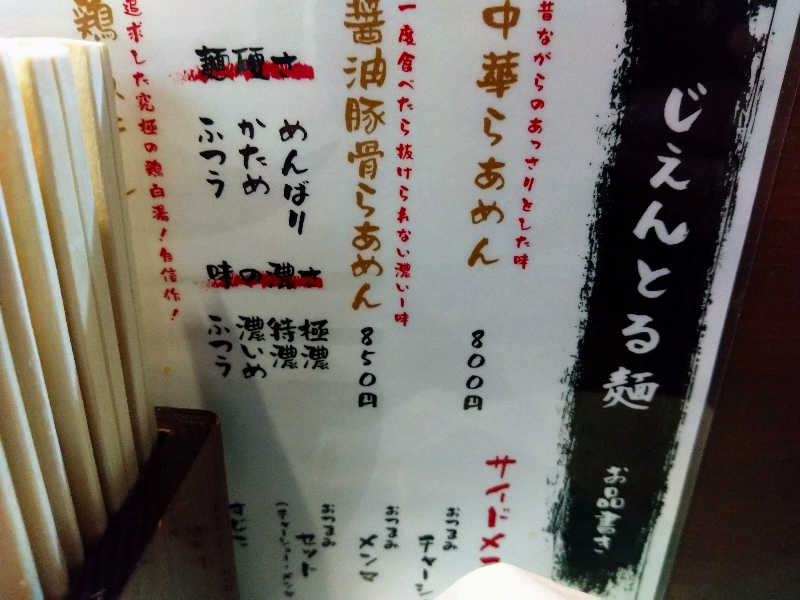 じぇんとる麺
お品書き
昔ながらのあっさりとした味
中華らあめん
800円
一度食べたら抜けられない濃い一味
醤油豚骨らあめん
850円
麺硬さ
めんばり
かため
ふつう
味の濃さ
極濃
特濃
濃いめ
ふつう
追求した究極の鶏白湯！自信作！
鶏
サイドメ
おつまみ
チャーシ
おつまみ
メンマ
おつまみ
セット